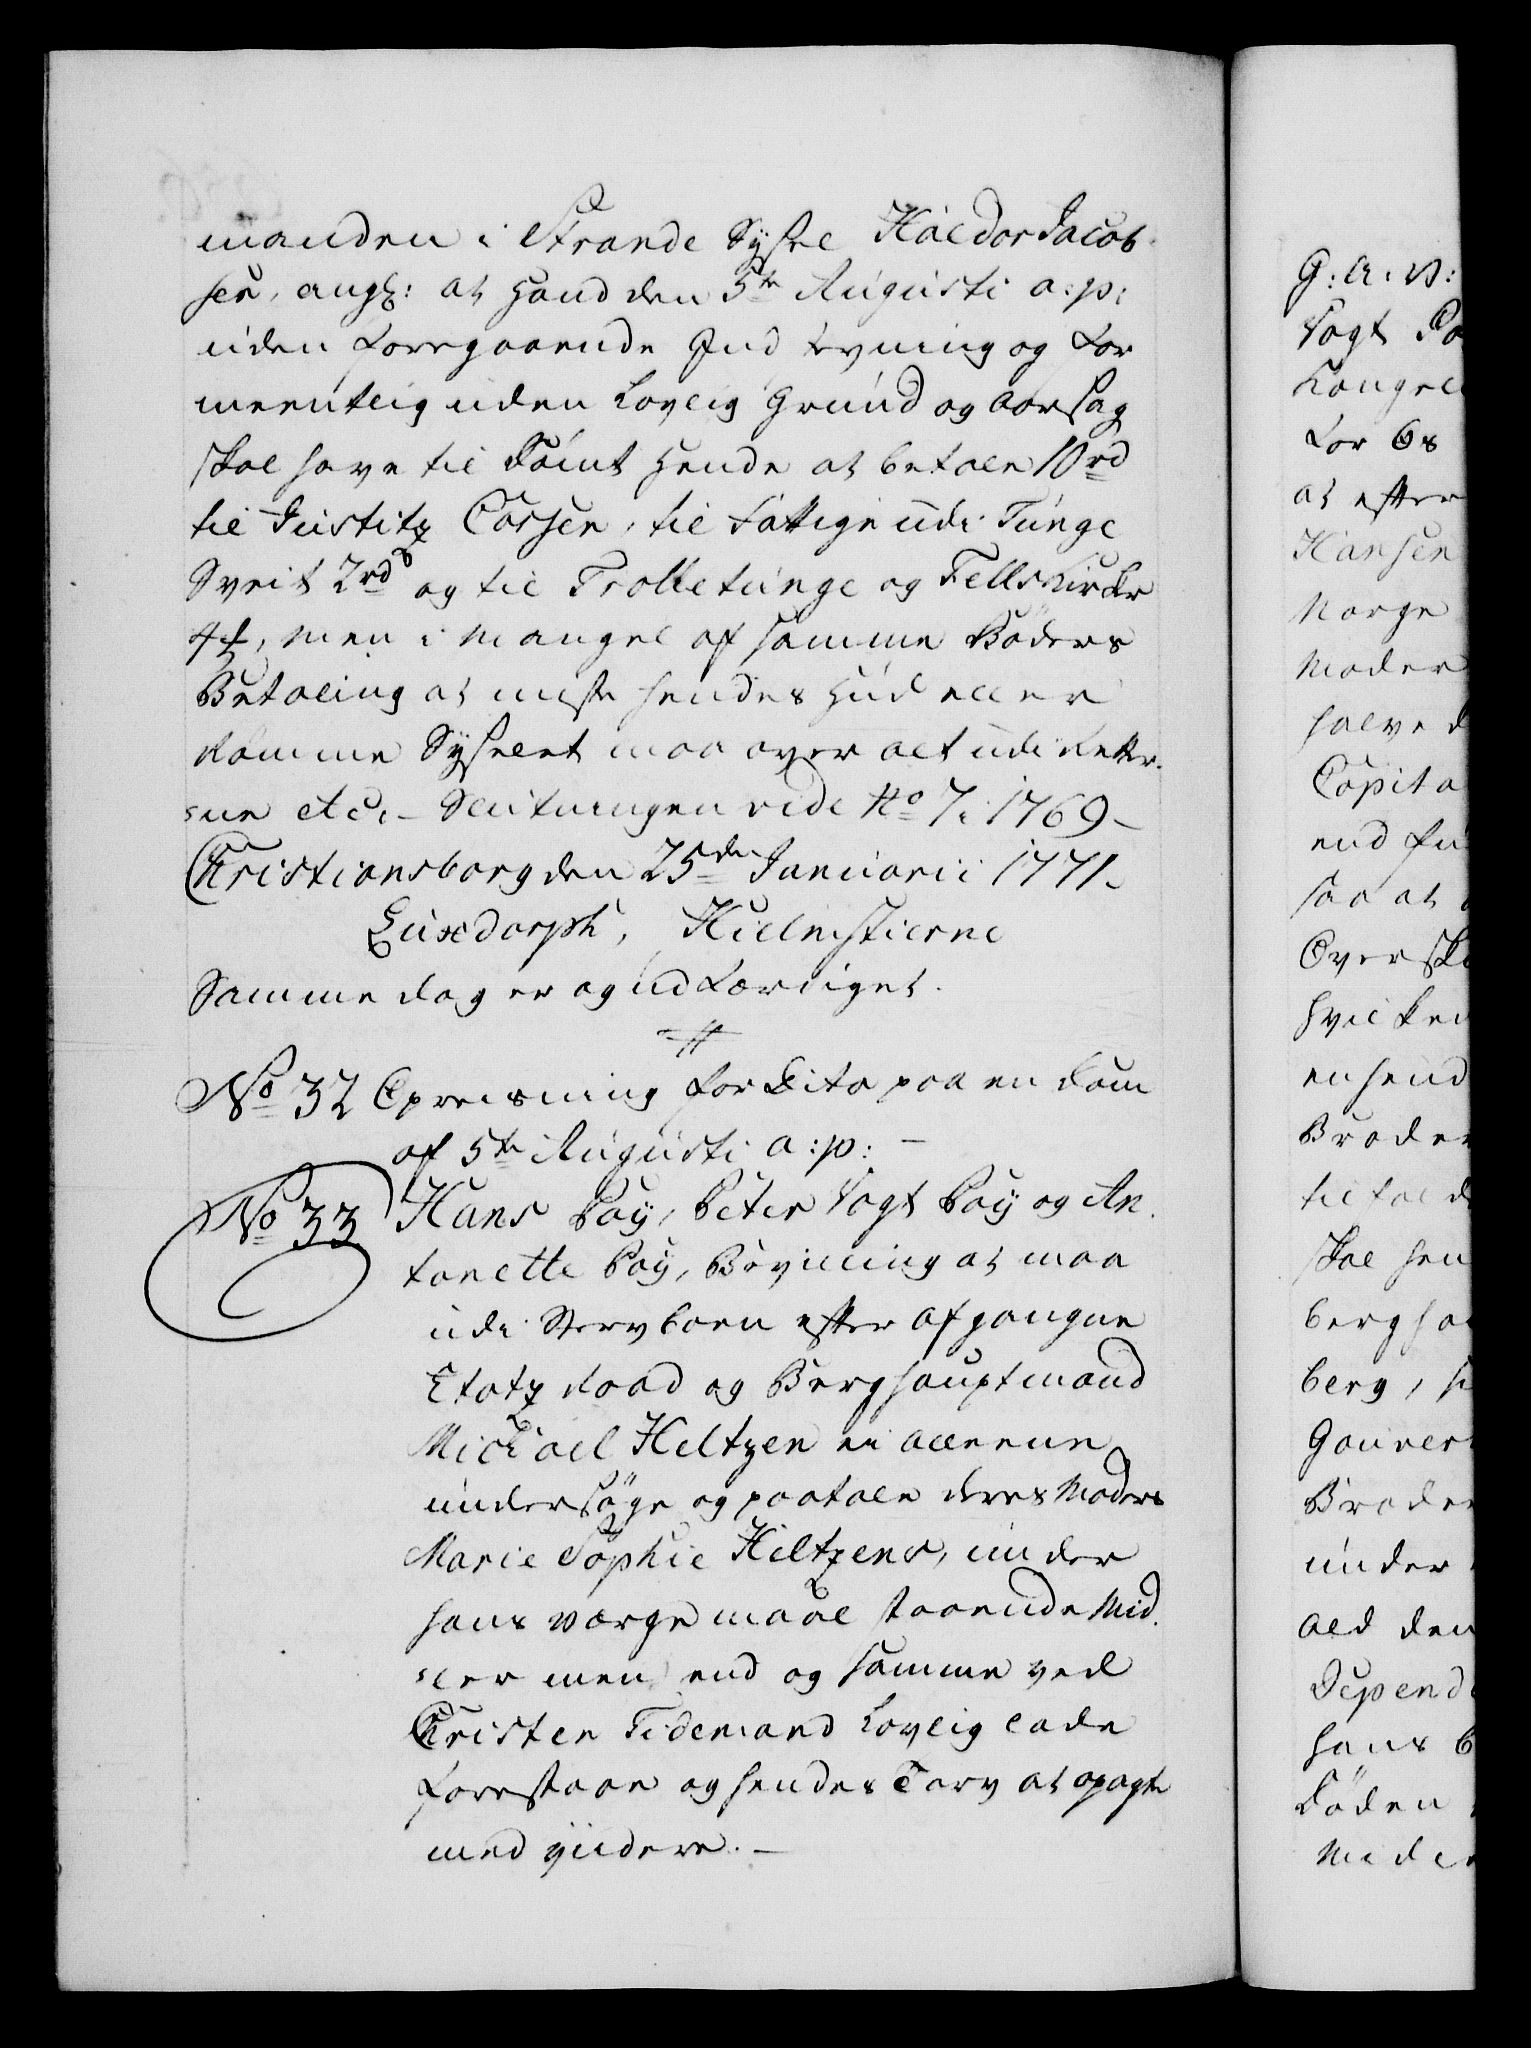 manden i Strande Syssel Haldor Jacob-
sen, angl: at hand den 5te Augusti a: p:
uden foregaaende Ind Tevning og for
meentlig uden Lovlig Grund og Aarsag
skal have til Dømt hende at betale 10rd
til Justitz Cassen, til Fattige udi Tunge
Sveit 2rd og til Trolletunge og Fells Kirker
4 , men i Mangel af samme Bøders
Betaling at miste hendes Hud eller
komme Sysselet maa over alt udi Retter-
ne etc. Slutningen vide No 7. 1769 -
Christiansborg den 25de Januarii 1771.
Luxdorph, Hielmstierne
Samme dag er og udfærdiget.
No 32 Opreisning for Dito paa en Dom
af 5te Augusti a: p: -
No 33 Hans Poÿ, Peter Vogt Poÿ og An-
tonette Poÿ, Bevilling at maa
udi Stervboen efter afgangne
Etatz Raad og Berghauptmand
Michael Heltzen ei alleene
undersøge og paatale deres Moders
Marie Sophie Heltzens, under
hans Værgemaal staaende Mid-
ler men end og samme ved
Christen Tidemand Lovlig lade
forestaae og hendes Tarv at opagte
med viidere. -
G: A: V:
Vogt Po
Kongel
for Os
at efter
Hansen
Norge
Moder
halve d
Capita
end fu
saa at
Oversk
hvilked
enhend
Broder
tilfald
skal hen
berg ha
berg, s
Gouver
Broder
under
ald den
Depend
hans
Døden
Medi